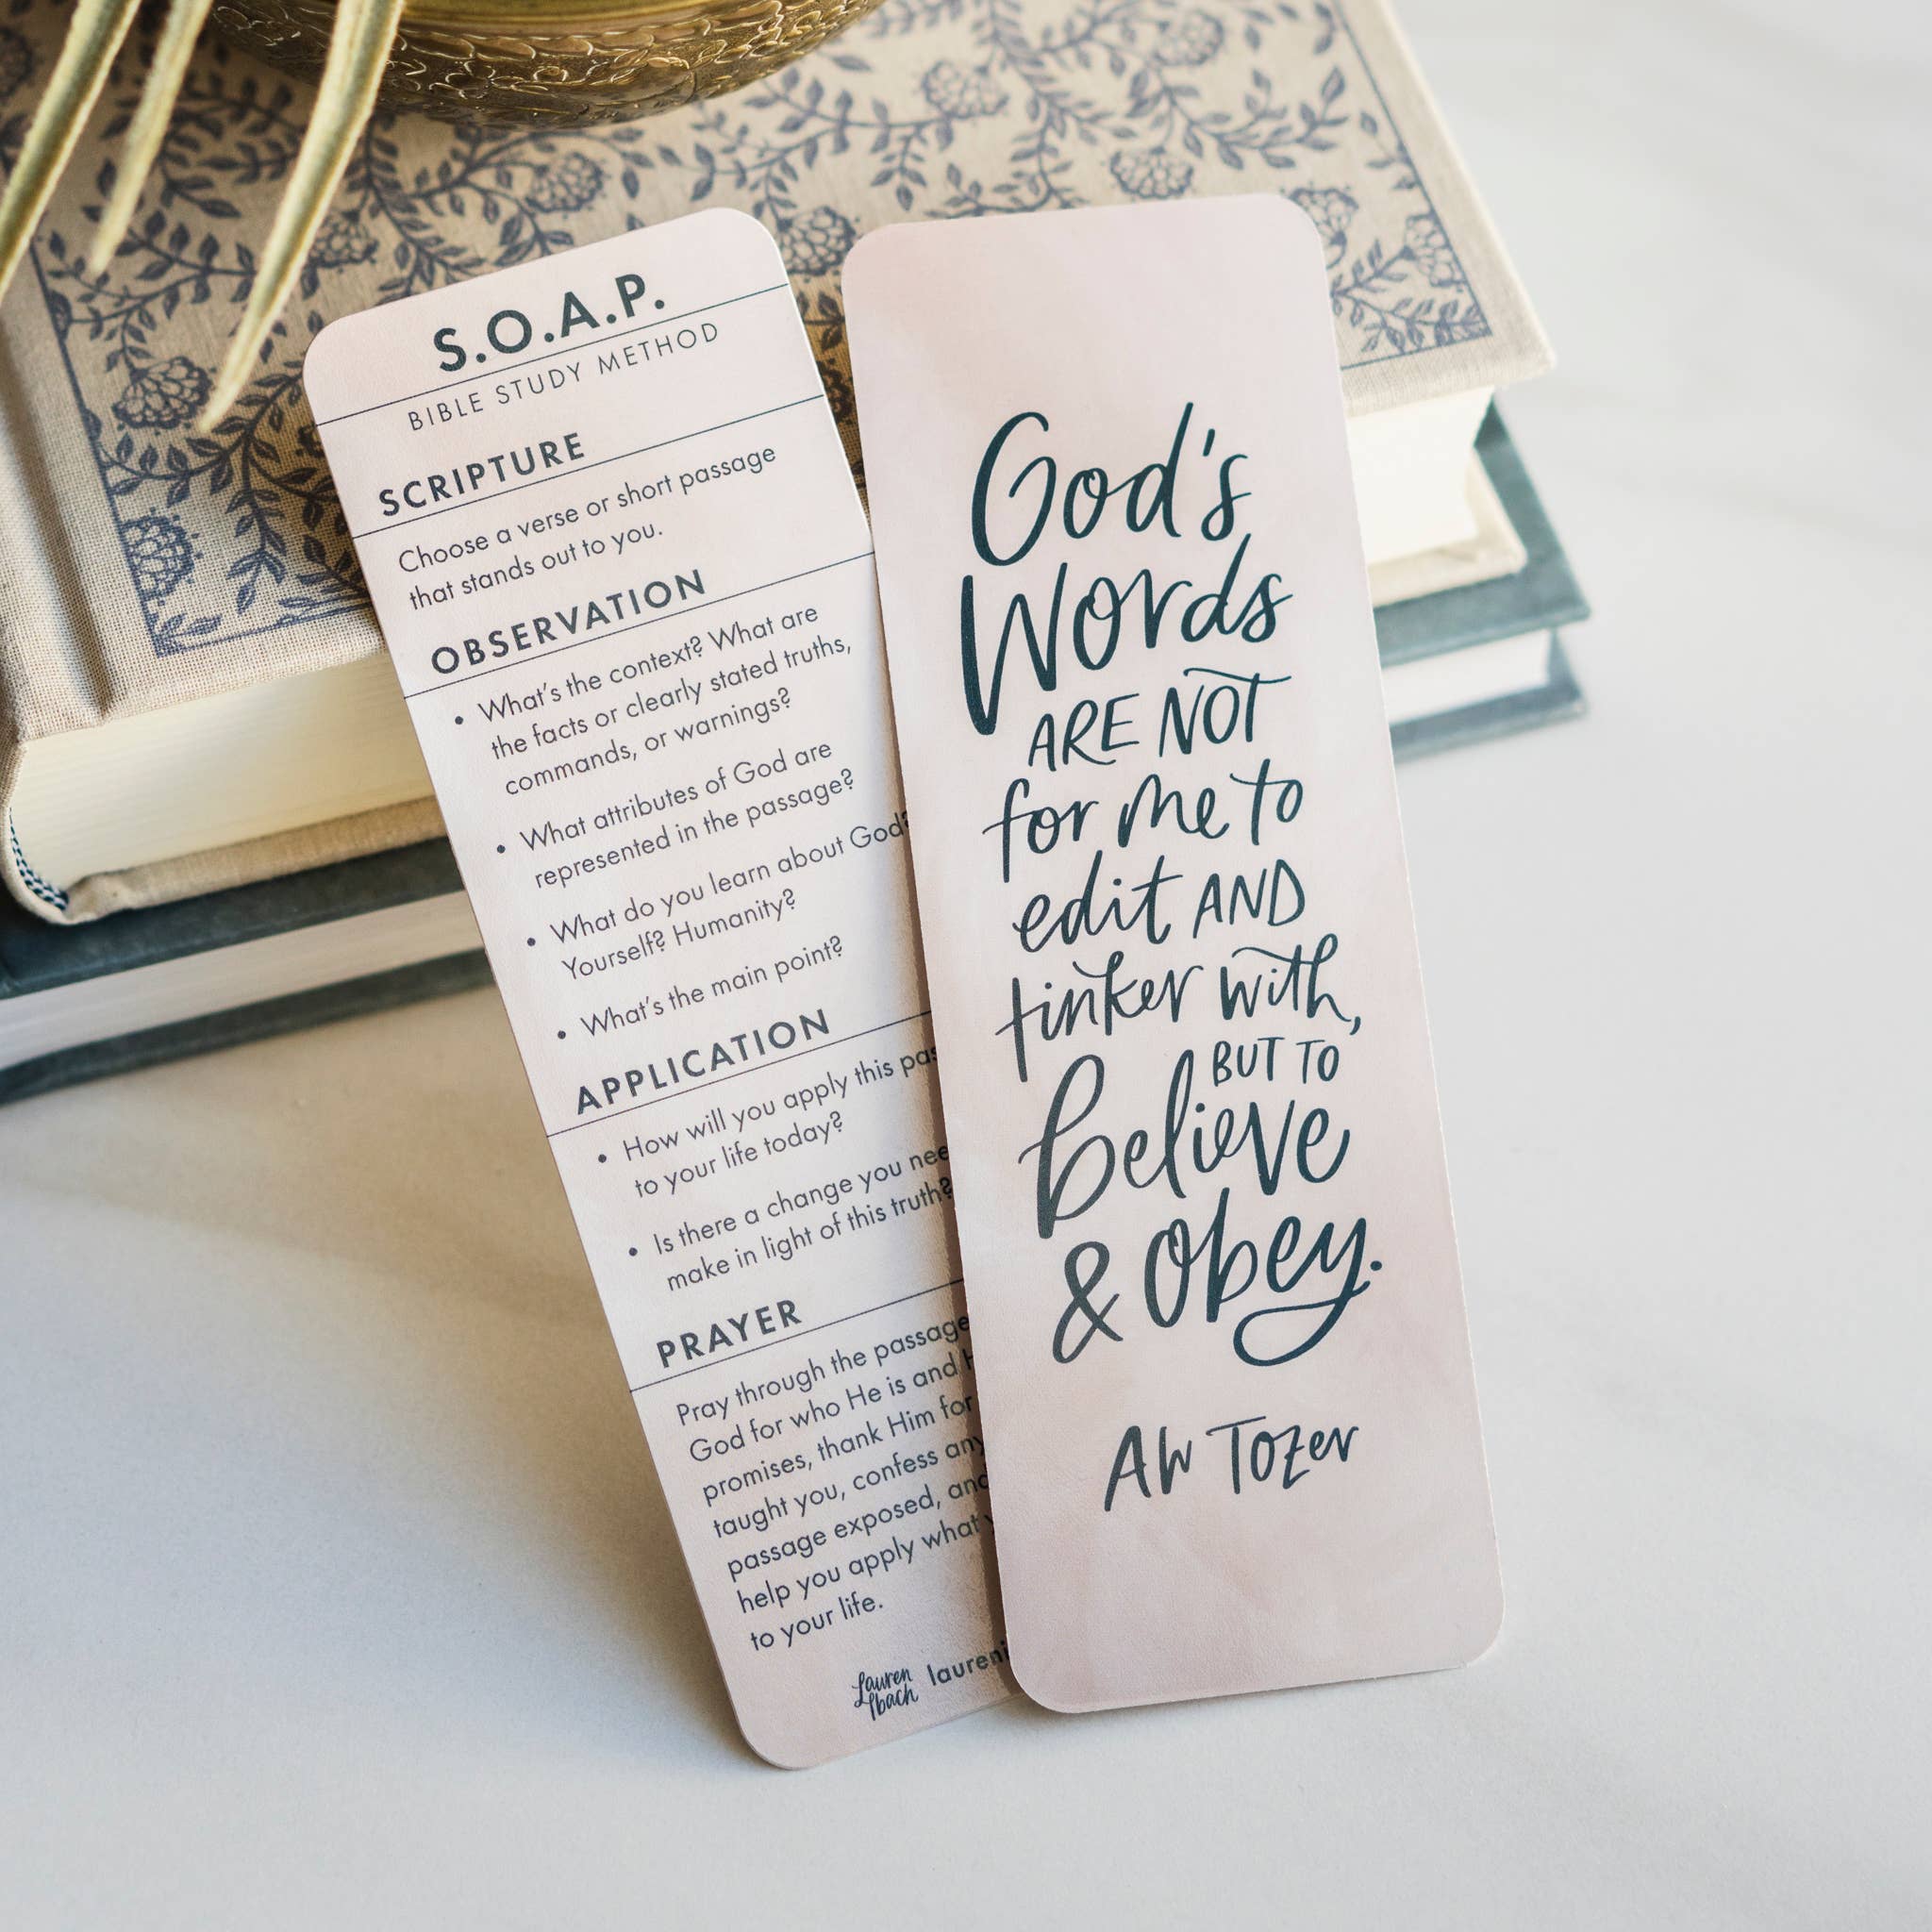 S.O.A.P.
BIBLE STUDY METHOD
SCRIPTURE
Choose a verse or short passage
that stands out to you.
OBSERVATION
• What's the context? What are
the facts or clearly stated truths,
commands, or warnings?
• What attributes of God are
represented in the passage?
• What do you learn about God?
Yourself? Humanity?
• What's the main point?
APPLICATION
• How will you apply this
to your life today?
• Is there a change you
make in light of this truth?
PRAYER
Pray through the passage
God for who He is and
promises, thank Him for
taught you, confess any
passage exposed, and
help you apply what
to your life.
Lauren
Ibach
God's
Words
ARE NOT
for me to
edit AND
tinker with,
BUT TO
believe
& obey.
AW Tozer